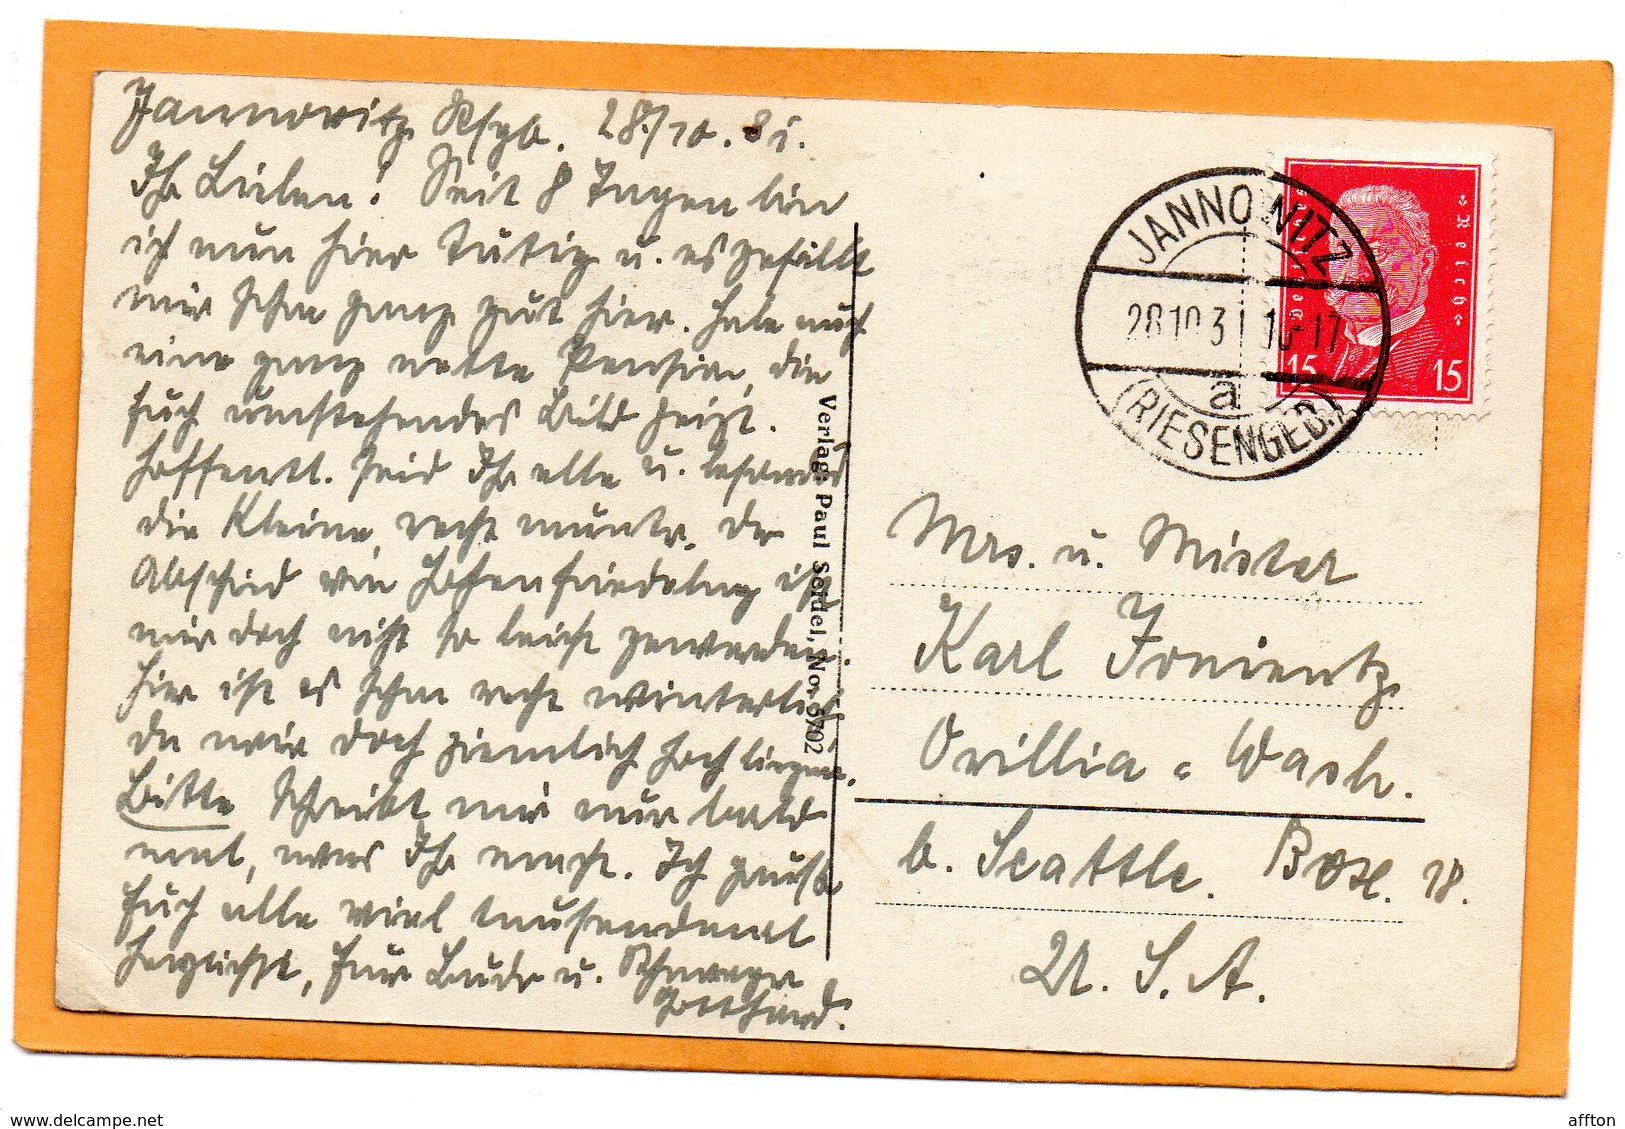 Jannowitz Rsgb. 28./10. 31.
Ihr Lieben! Seit 8 Tagen bin
ich nun hier tätig u. es gefällt
mir schon ganz gut hier. Habe auch
eine ganz nette Pension, die
Euch umstehendes Bild zeigt.
Hoffentl. seid Ihr alle u. besonders
die Kleine, recht munter. Der
Abschied von Hohenfriedebg ist
mir doch nicht so leicht geworden.
Hier ist es schon recht winterlich
da wir doch ziemlich hoch liegen.
Bitte schreibt mir nur bald
mal, was Ihr macht. Ich grüße
Euch alle viel tausendmal
herzlichst, Euer Bruder u. Schwager
Gotthard.
Verlag: Paul Seidel, No. 5702
JANNOWITZ
28.10.31 16-17
a
(RIESENGEB.)
Deutsches Reich
15 15
Mrs. u. Mister
Karl
Orillia - Wash.
b. Seattle. Box. 18.
U. S. A.
affton